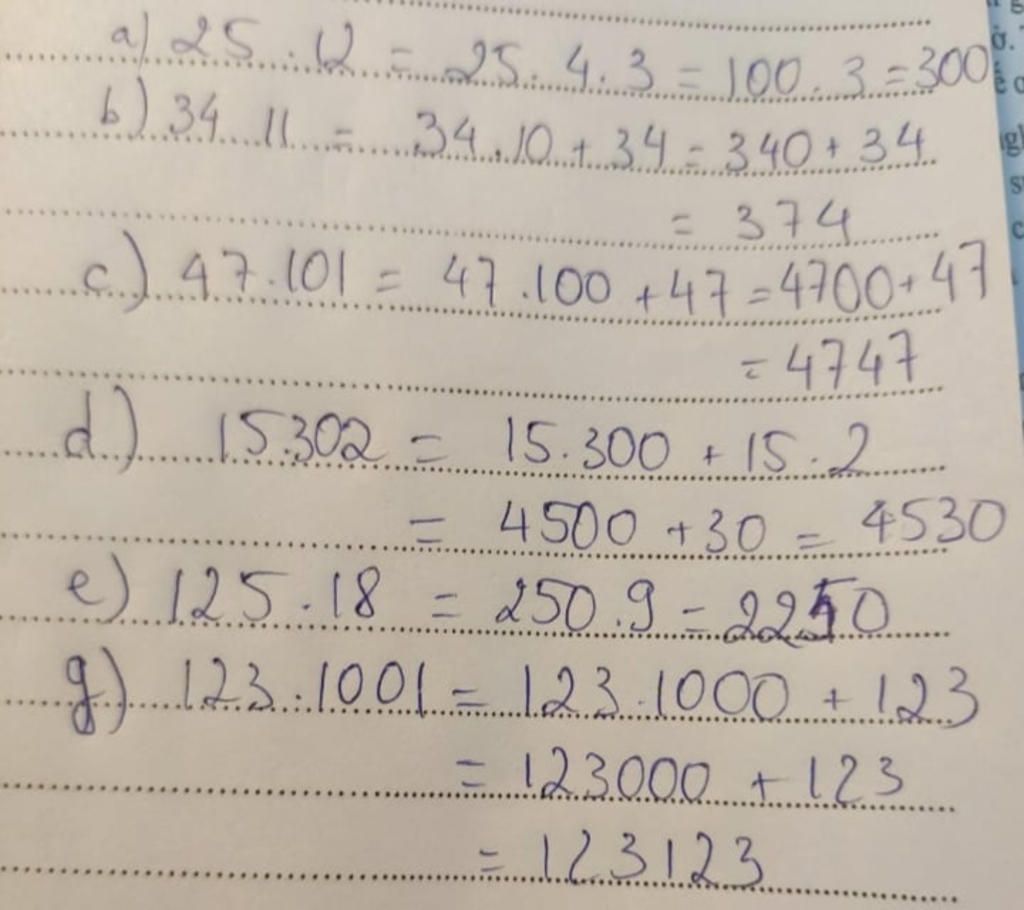 a) 25 . 12 = 25 . 4 . 3 = 100 . 3 = 300
b) 34 . 11 = 34 . 10 + 34 = 340 + 34
= 374
c) 47 . 101 = 47 . 100 + 47 = 4700 + 47
= 4747
d) 15.302 = 15 . 300 + 15 . 2
= 4500 + 30 = 4530
e) 125 . 18 = 250 . 9 = 2250
g) 123 . 1001 = 123 . 1000 + 123
= 123000 + 123
= 123123